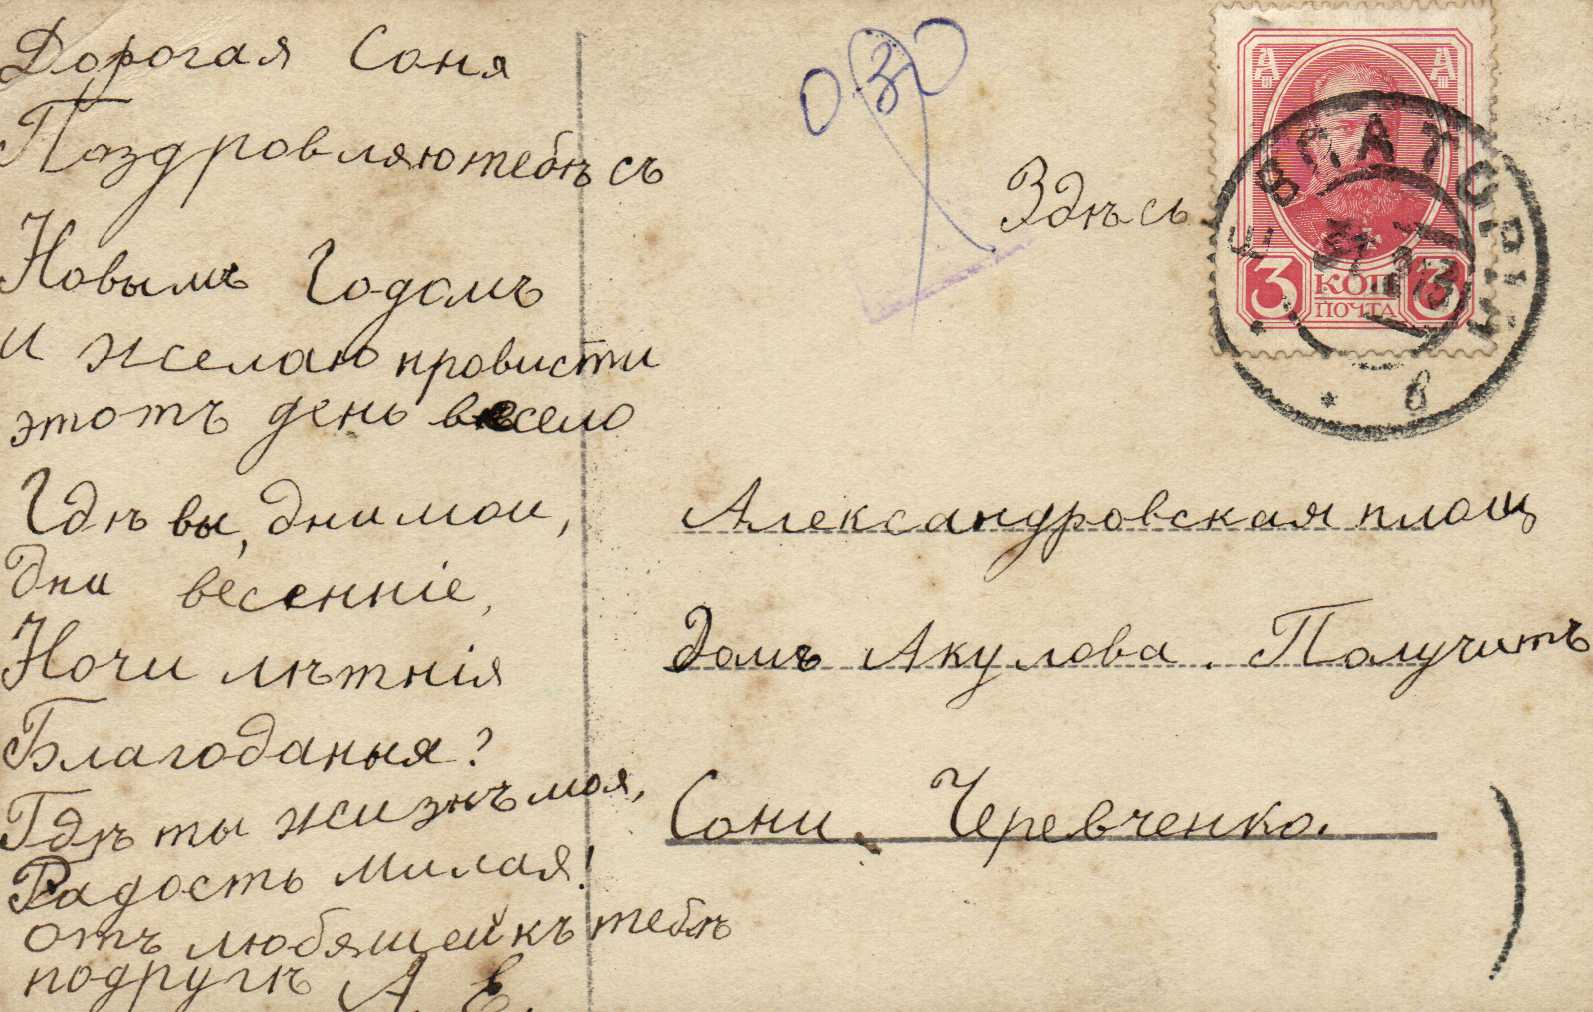 Дорогая Соня
Поздровляю тебѣ съ
Новымъ Годомъ
и желаю провисти
этотъ день весело
Гдѣ вы, дни мои,
Дни весеннiе,
Ночи лѣтнiя
Благоданья?
Гдѣ ты жизнь моя,
Радость милая!
отъ любящей къ тебѣ
подругѣ А. Е.
030
Здѣсь
ЕВПАТОРIЯ
31 12 13
в
3 КОП 3
ПОЧТА
Александровская площ
Домъ Акулова. Получитъ
Сони. Черевченко.